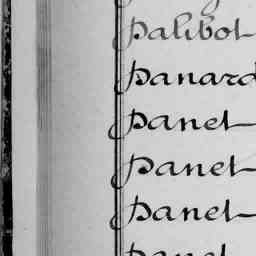 Palibot
Panard
Panet
Panet
Panet
Panet